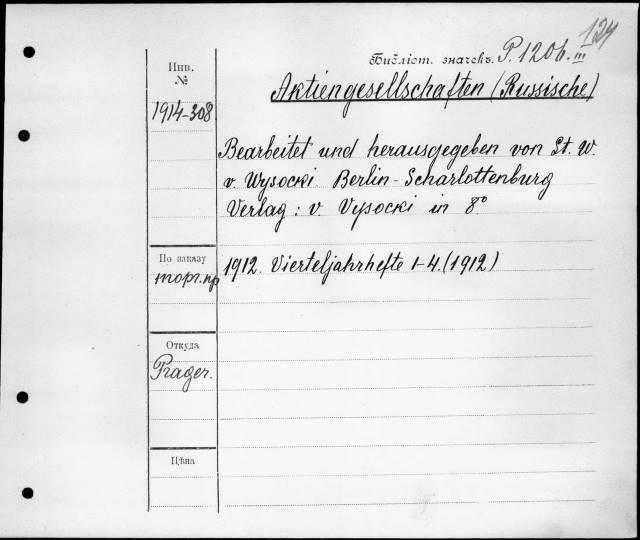 124
Библіот. значекъ. P. 1206. III
Инв.
№
Aktiengesellschaften (Russische)
1914-308
Bearbeitet und herausgegeben von St. W.
v. Wysocki. Berlin-Scharlottenburg
Verlag: v. Vysocki in 8º.
По заказу
торг. пр
1912. Vierteljahrhefte 1-4. (1912)
Откуда
Prager.
Цѣна